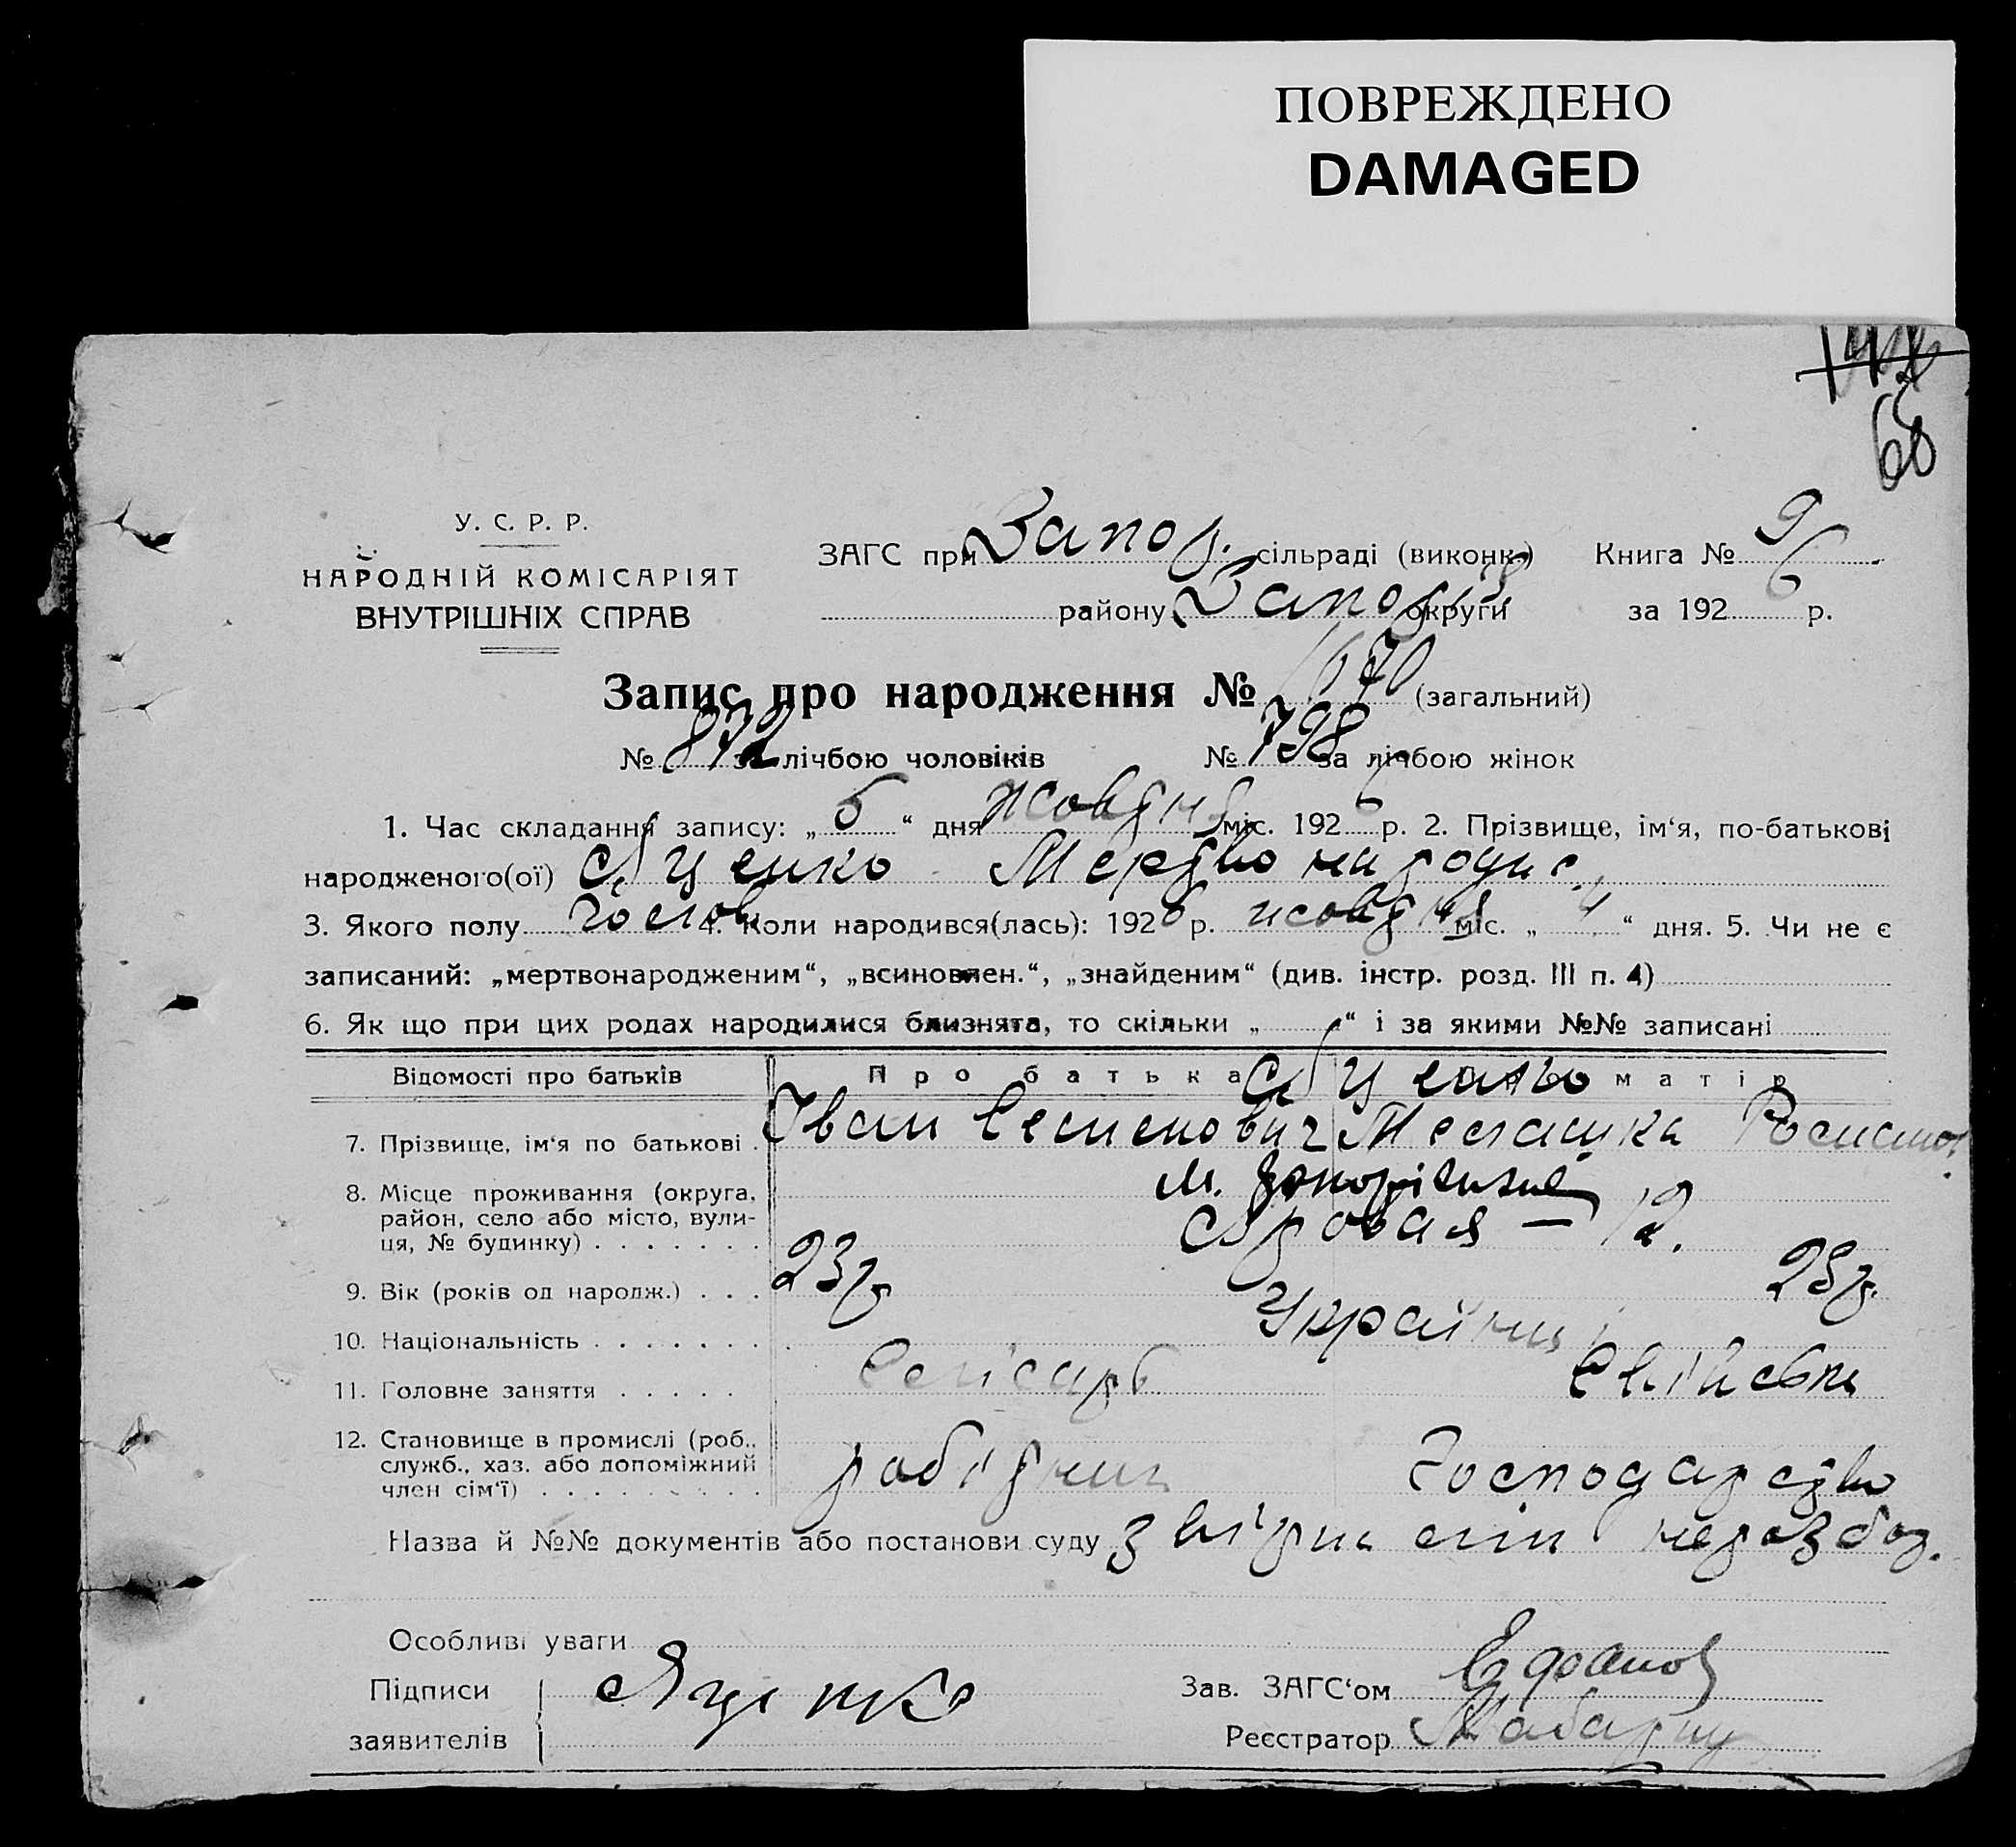 ПОВРЕЖДЕНО
DAMAGED
68
У. С. Р. Р.
НАРОДНІЙ КОМІСАРІЯТ
ВНУТРІШНІХ СПРАВ
ЗАГС при Запор. сільраді (виконк.) Книга № 9
району Запоріз округи за 1926 р.
Запис про народження № 1670 (загальний)
№ 872 за лічбою чоловіків № 798 за лічбою жінок
1. Час складання запису: „ 5 “ дня жовтня міс. 1926 р. 2. Прізвище, ім‘я, по-батькові
народженого(ої) Яценко Мертво народже.
3. Якого полу чолов 4. Коли народився(лась): 1926 р. жовтня міс. „ 4 “ дня. 5. Чи не є
записаний: „мертвонародженим“, „всиновлен.“, „знайденим“ (див. інстр. розд. III п. 4)
6. Як що при цих родах народилися близнята, то скільки „ “ і за якими №№ записані
Відомості про батьків Про батька Яценко Про матір
7. Прізвище, ім‘я по батькові . Іван Семенович Меланка Романов.
8. Місце проживання (округа, м. Запоріжжя
район, село або місто, вули- — 12.
ця, № будинку)
9. Вік (років од народж.) . . . 23 р. 23 р.
10. Національність Українці
11. Головне заняття Слісарь
12. Становище в промислі (роб., робітник Господарство
служб., хаз. або допоміжний
член сім‘ї)
Назва й №№ документів або постанови суду
Особливі уваги
Підписи Яценко Зав. ЗАГС‘ом
заявителів Реєстратор